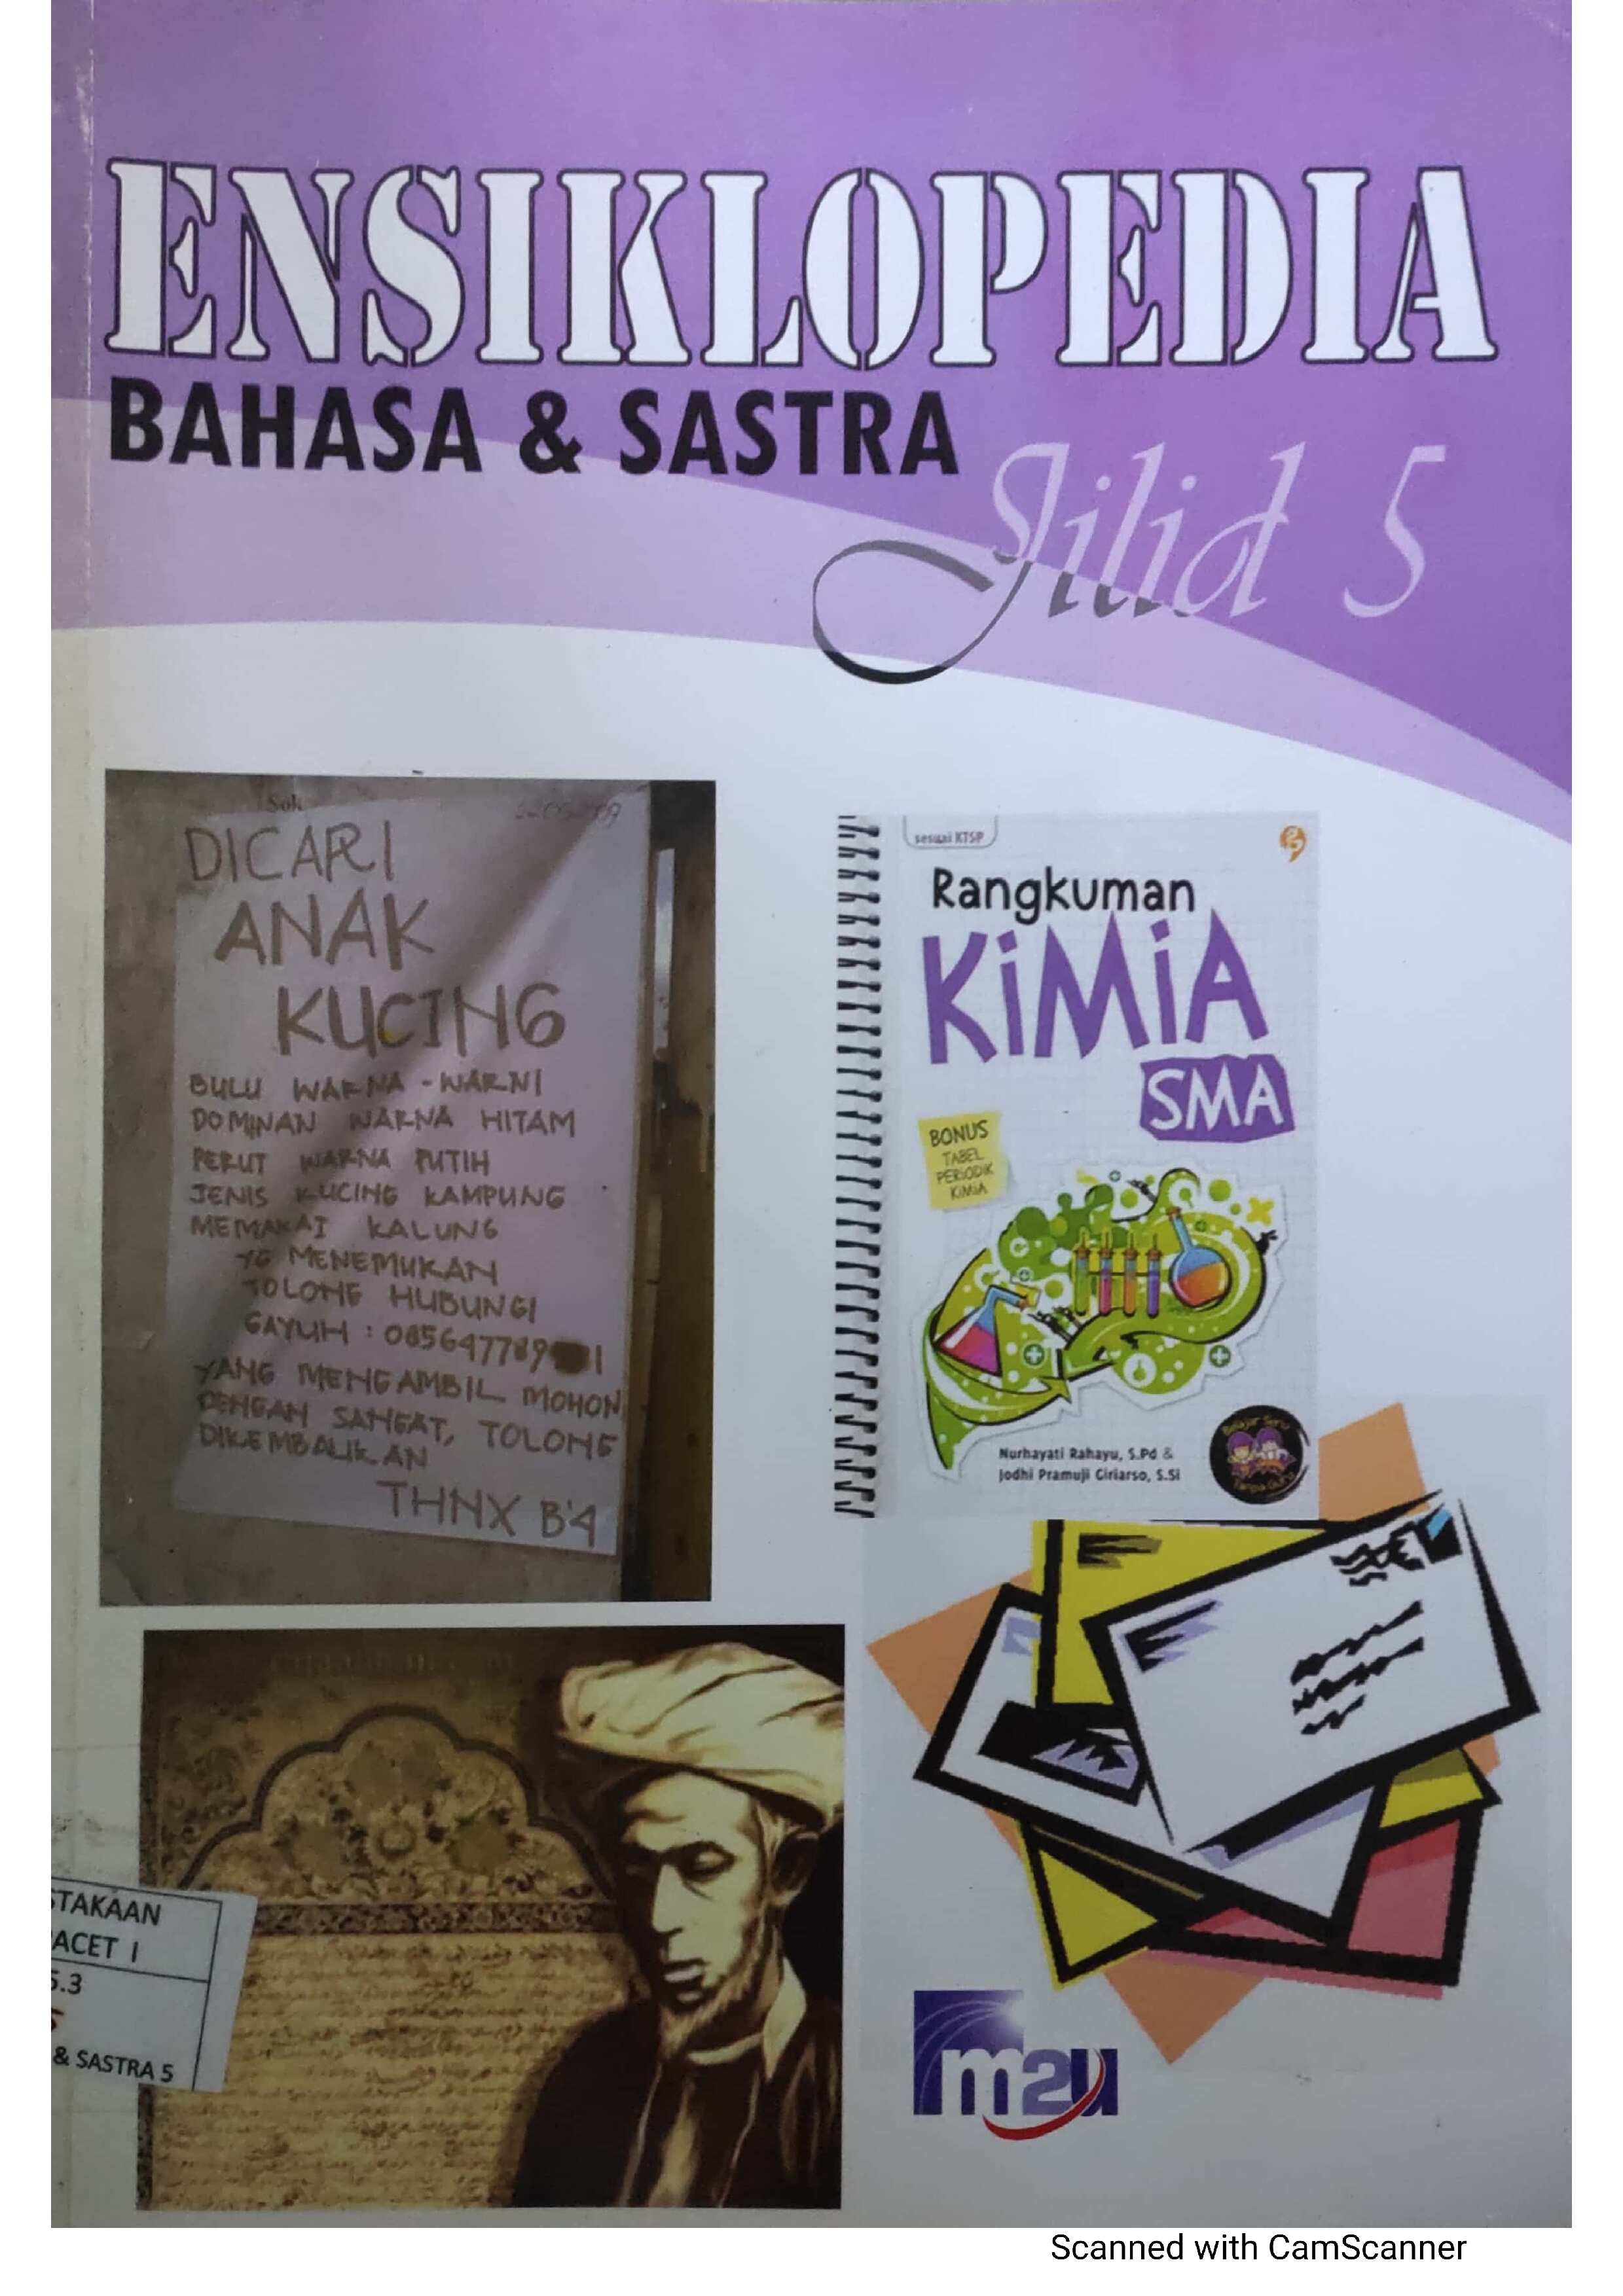 ENSIKLOPEDIA
BAHASA & SASTRA
Jilid 5
Sok
DICARI
ANAK
KUCING
BULU WARNA - WARNI
DOMINAN WARNA HITAM
PERUT WARNA PUTIH
JENIS KUCING KAMPUNG
MEMAKAI KALUNG
YG MENEMUKAN
TOLONG HUBUNGI
GAYUH : 085647789 1
YANG MENGAMBIL MOHON
DENGAN SANGAT, TOLONG
DIKEMBALIKAN
THNX B'4
sesuai KTSP
Rangkuman
KiMiA
SMA
BONUS
TABEL
PERIODIK
KIMIA
Nurhayati Rahayu, S.Pd &
Jodhi Pramuji Giriarso, S.Si
Belajar Seru
Tanpa Guru
STAKAAN
ACET I
5.3
& SASTRA 5
m2u
Scanned with CamScanner